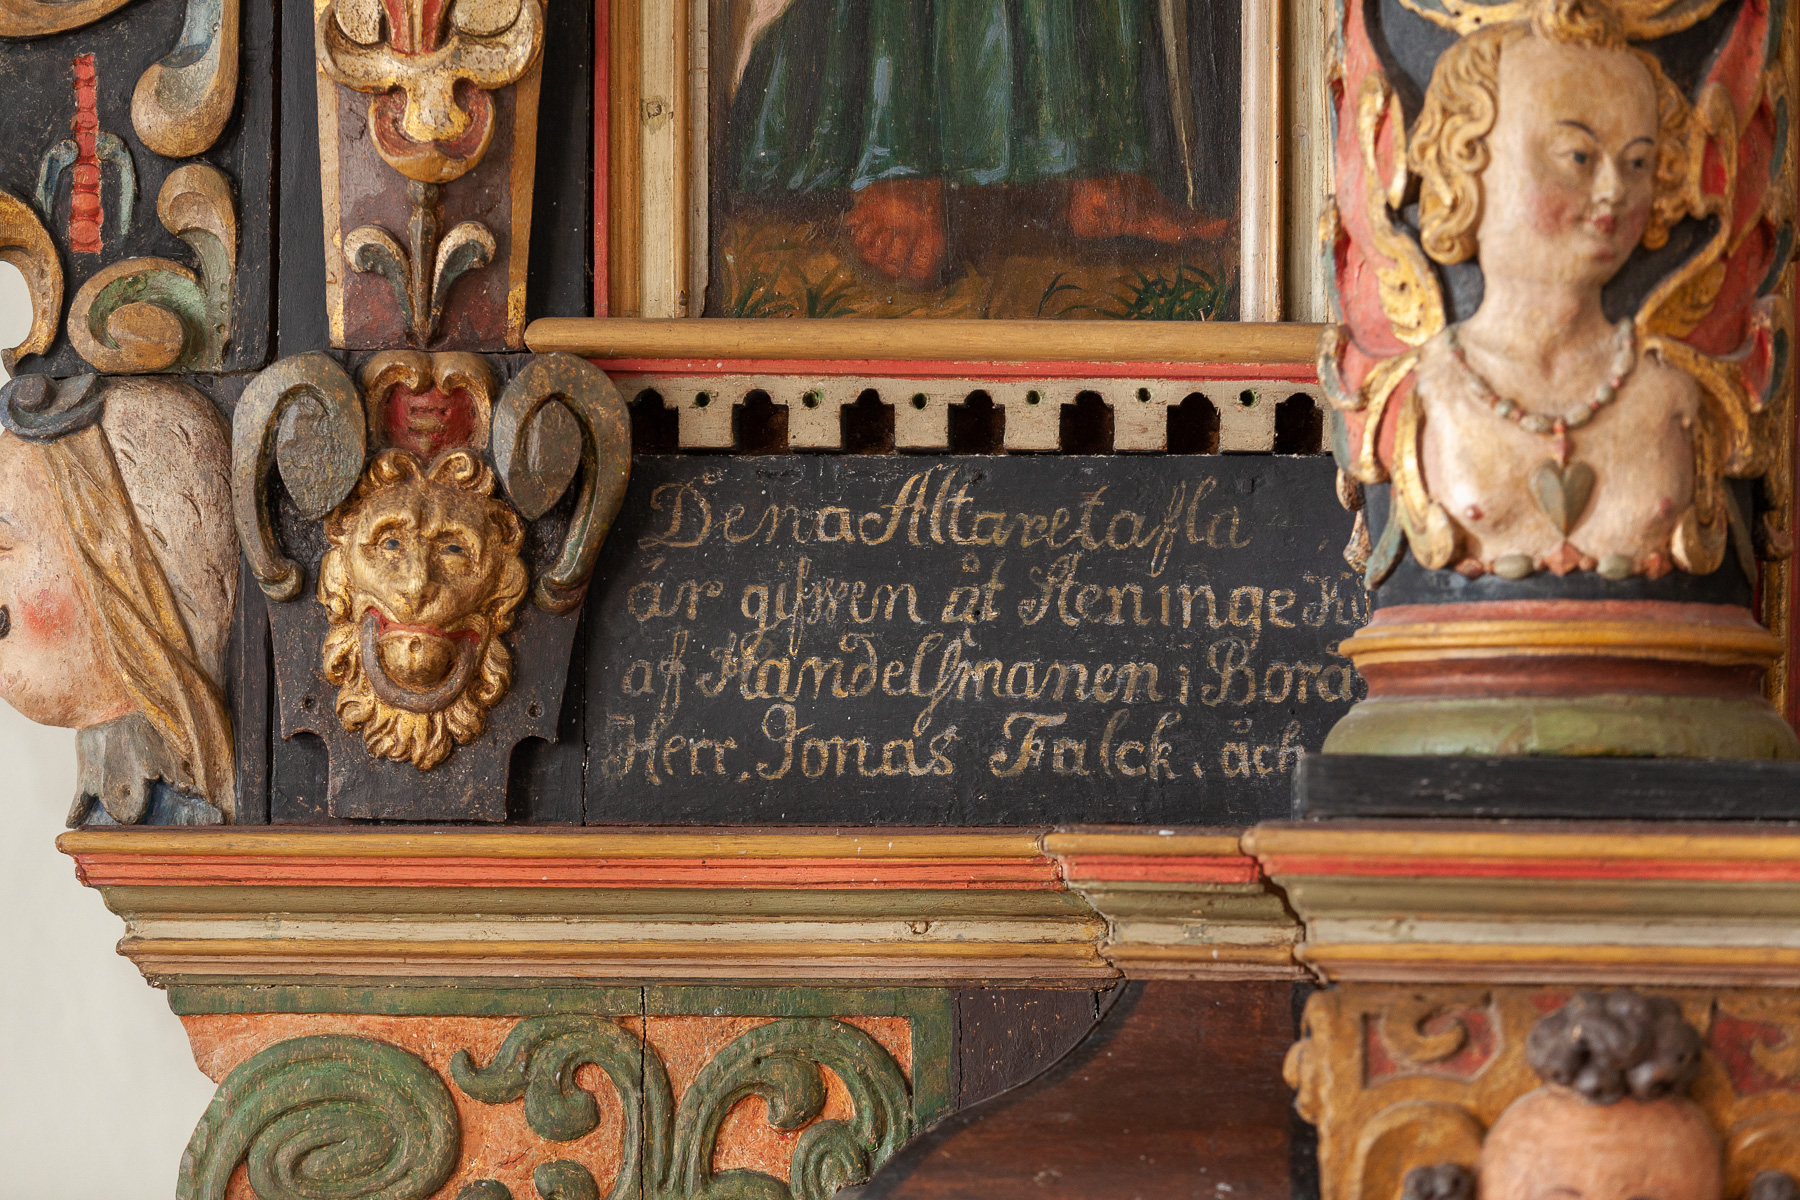 Dena Altaretafla
är gifwen åt Heninge
aff Handelsmanen i Borå
Herr. Jonas Falck. äch